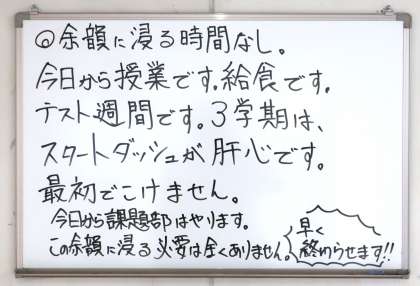 ◎余韻に浸る時間なし。
今日から授業です.給食です.
テスト週間です。3学期は、
スタートダッシュが肝心です。
最初でこけません。
今日から課題部はやります。
この余韻に浸る必要は全くありません。
早く
終わらせます!!